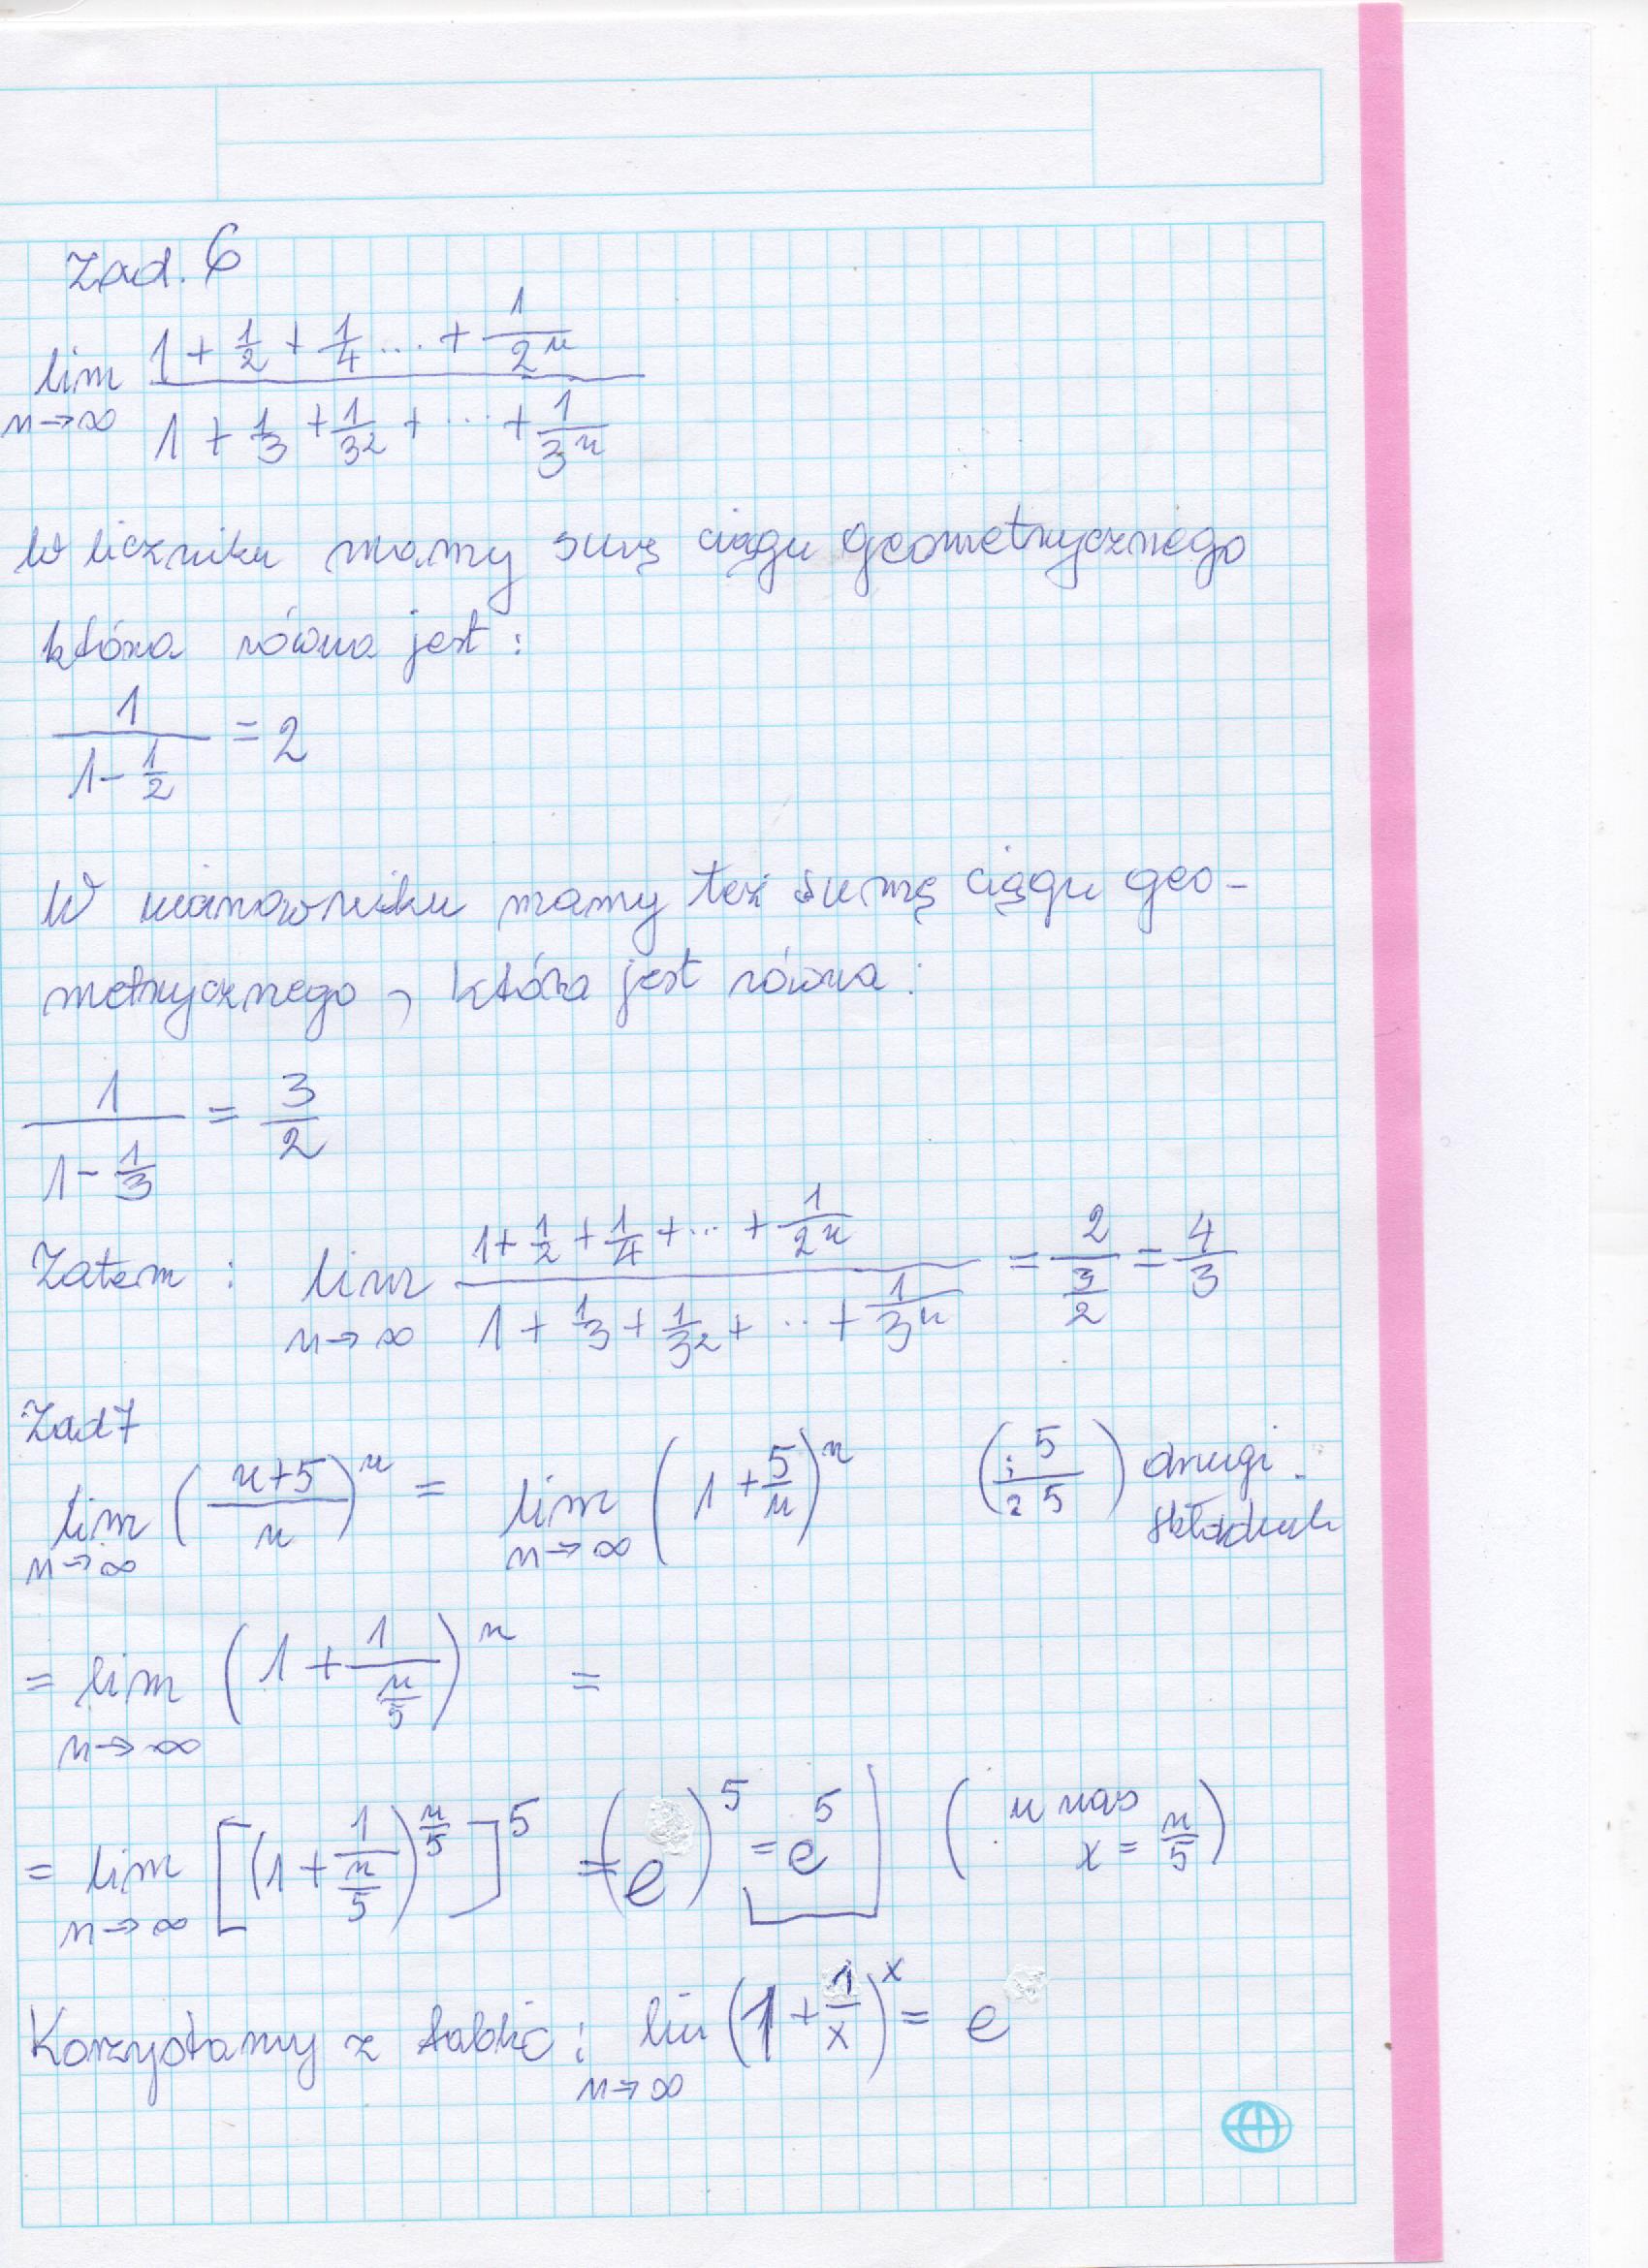 Zad. 6
lim n→∞ (1 + 1/2 + 1/4 .... + 1/2^n) / (1 + 1/3 + 1/3^2 + ... + 1/3^n)
W liczniku mamy sumę ciągu geometrycznego
która równa jest :
1/(1 - 1/2) = 2
W mianowniku mamy też sumę ciągu geo-
metrycznego, która jest równa :
1/(1 - 1/3) = 3/2
Zatem : lim n→∞ (1 + 1/2 + 1/4 + ... + 1/2^n) / (1 + 1/3 + 1/3^2 + ... + 1/3^n) = 2/(3/2) = 4/3
Zad 7
lim n→∞ ((n+5)/n)^n = lim n→∞ (1 + 5/n)^n (: 5 / : 5) drugi
składnik
= lim n→∞ (1 + 1/(n/5))^n =
= lim n→∞ [(1 + 1/(n/5))^(n/5)]^5 = (e)^5 = e^5 (u nas x = n/5)
Korzystamy z tablic : lim n→∞ (1 + 1/x)^x = e